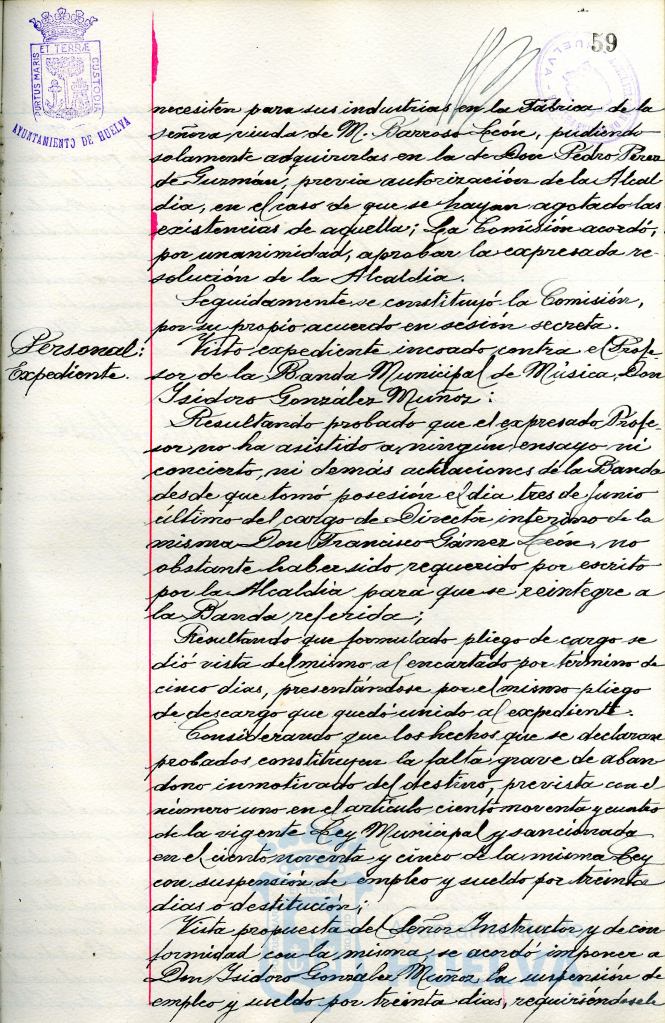 59
PORTUS MARIS ET TERRÆ CUSTODIA
AYUNTAMIENTO DE HUELVA
necesiten para sus industrias en la Fábrica de la
señora viuda de M. Barroso León, pudiendo
solamente adquirirlas en la de Don Pedro Pérez
de Guzmán, previa autorización de la Alcal-
día, en el caso de que se hayan agotado las
existencias de aquella; La Comisión acordó,
por unanimidad, aprobar la expresada re-
solución de la Alcaldía.
Seguidamente se constituyó la Comisión,
por su propio acuerdo en sesión secreta.
Personal:
Expediente.
Visto expediente incoado contra el Profe-
sor de la Banda Municipal de Música, Don
Isidoro González Muñoz:
Resultando probado que el expresado Profe-
sor no ha asistido a ningún ensayo ni
concierto, ni demás actuaciones de la Banda
desde que tomó posesión el día tres de junio
último del cargo de Director interino de la
misma Don Francisco Gámez León, no
obstante haber sido requerido por escrito
por la Alcaldía para que se reintegre a
la Banda referida;
Resultando que formulado pliego de cargo se
dió vista del mismo al encartado por término de
cinco días, presentándose por el mismo pliego
de descargo que quedó unido al expediente.
Considerando que los hechos que se declaran
probados constituyen la falta grave de aban-
dono inmotivado del destino, prevista con el
número uno en el artículo ciento noventa y cuatro
de la vigente Ley Municipal y sancionada
en el ciento noventa y cinco de la misma Ley
con suspensión de empleo y sueldo por treinta
días o destitución;
Vista propuesta del Señor Instructor y de con-
formidad con la misma, se acordó imponer a
Don Isidoro González Muñoz la suspensión de
empleo y sueldo por treinta días, requiriéndosele